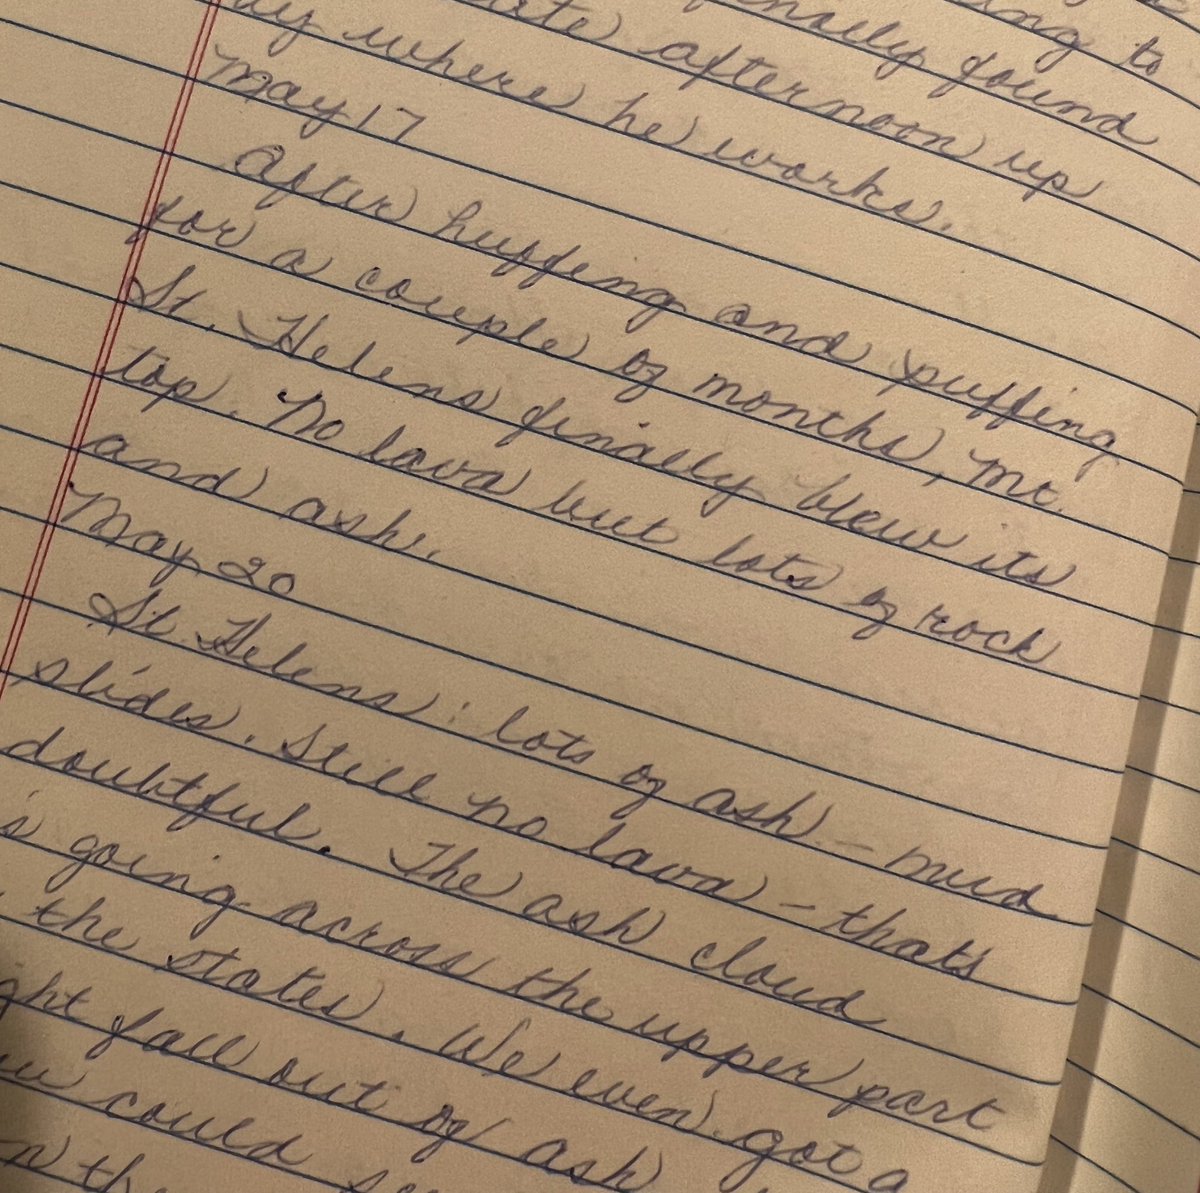 ing to
finally found
late afternoon up
where he works.
May 17
After huffing and puffing
for a couple of months, Mt.
St. Helens finally blew its
top. No lava but lots of rock
and ash.
May 20
St. Helens: lots of ash - mud
slides. Still no lava - thats
doubtful. The ash cloud
's going across the upper part
the states. We even got a
ght fall out of ash
could